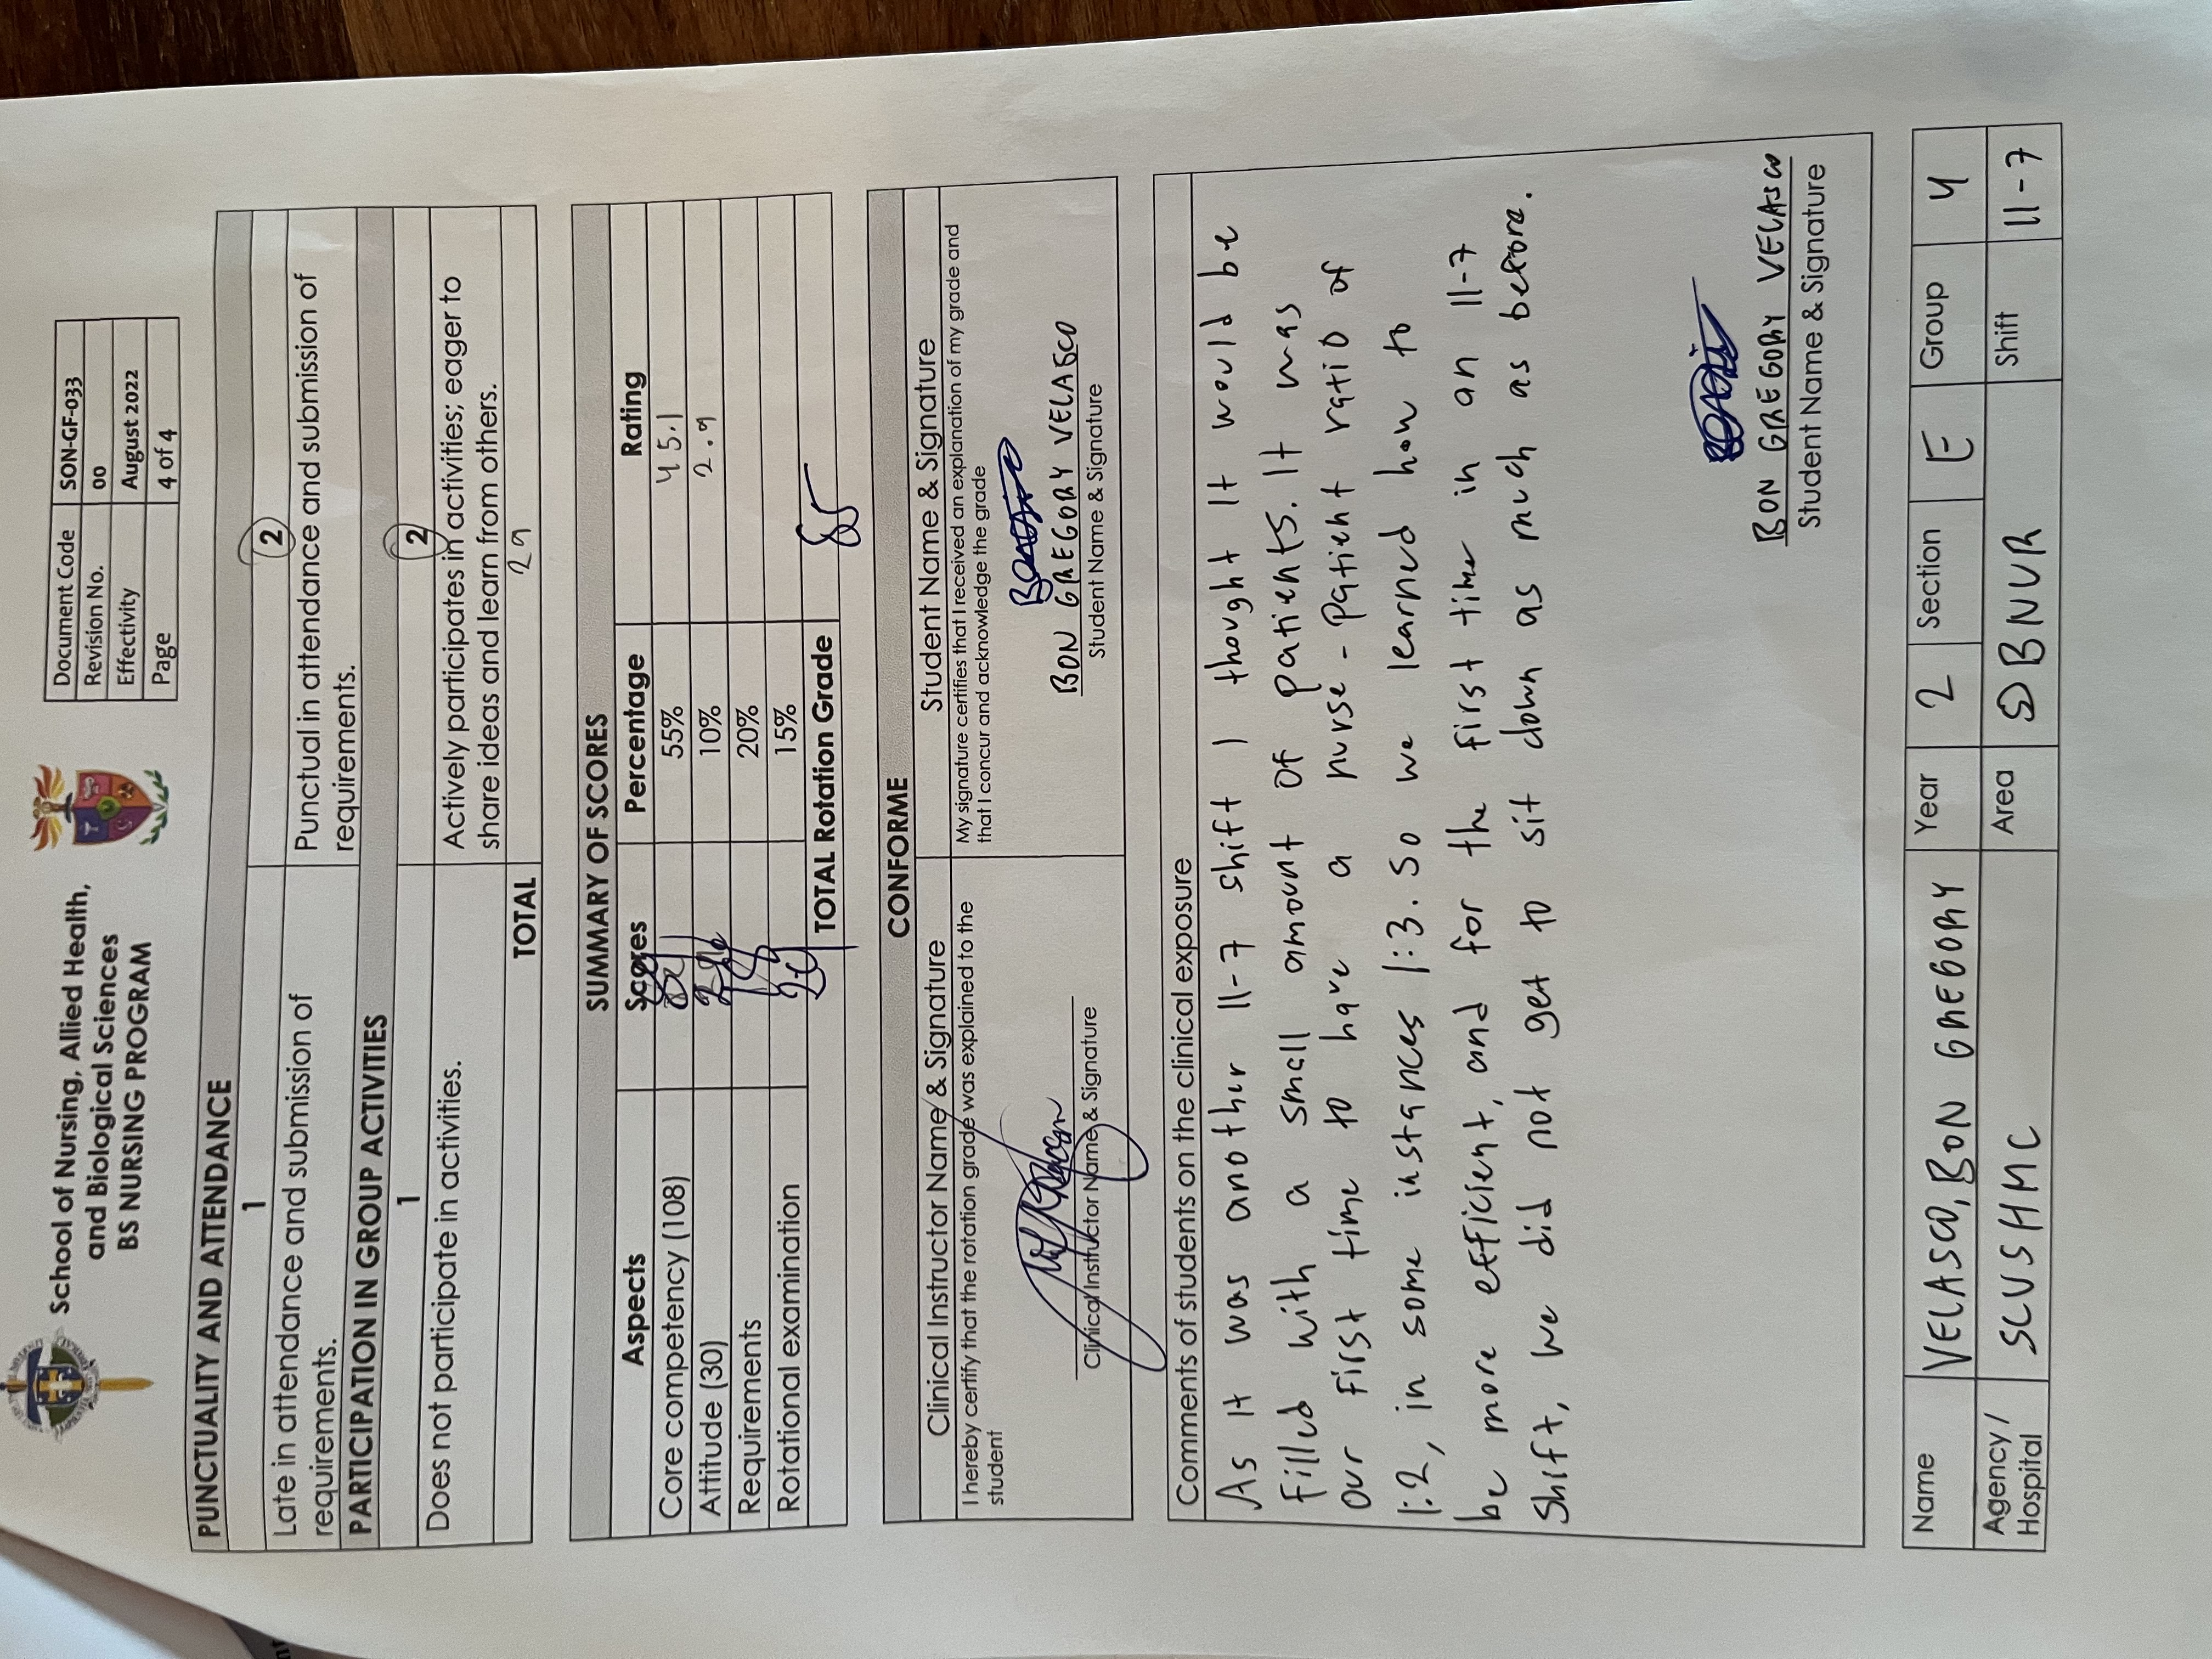 School of Nursing, Allied Health,
and Biological Sciences
BS NURSING PROGRAM
Document Code SON-GF-033
Revision No. 00
Effectivity August 2022
Page 4 of 4
PUNCTUALITY AND ATTENDANCE
1 2
Late in attendance and submission of requirements.
Punctual in attendance and submission of requirements.
PARTICIPATION IN GROUP ACTIVITIES
1 2
Does not participate in activities.
Actively participates in activities; eager to
share ideas and learn from others.
TOTAL 29
SUMMARY OF SCORES
Aspects Scores Percentage Rating
Core competency (108) 55% 45.1
Attitude (30) 10% 2.9
Requirements 18 20%
Rotational examination 15%
TOTAL Rotation Grade 85
CONFORME
Clinical Instructor Name & Signature
I hereby certify that the rotation grade was explained to the
student
Clinical Instructor Name & Signature
Student Name & Signature
My signature certifies that I received an explanation of my grade and
that I concur and acknowledge the grade
BON GREGORY VELASCO
Student Name & Signature
Comments of students on the clinical exposure
As it was another 11-7 shift I thought It would be
filled with a small amount of patients. It was
our first time to have a nurse-patient ratio of
1:2, in some instances 1:3. So we learned how to
be more efficient, and for the first time in an 11-7
shift, we did not get to sit down as much as before.
BON GREGORY VELASCO
Student Name & Signature
Name VELASCO, BON GREGORY Year 2 Section E Group 4
Agency / Hospital SCUSHMC Area BNUR Shift 11-7